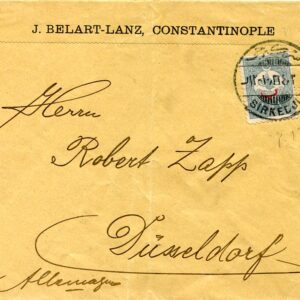 J. BELART-LANZ, CONSTANTINOPLE
SIRKEDJI
Herrn
Robert Zapp
Düsseldorf
Allemagne